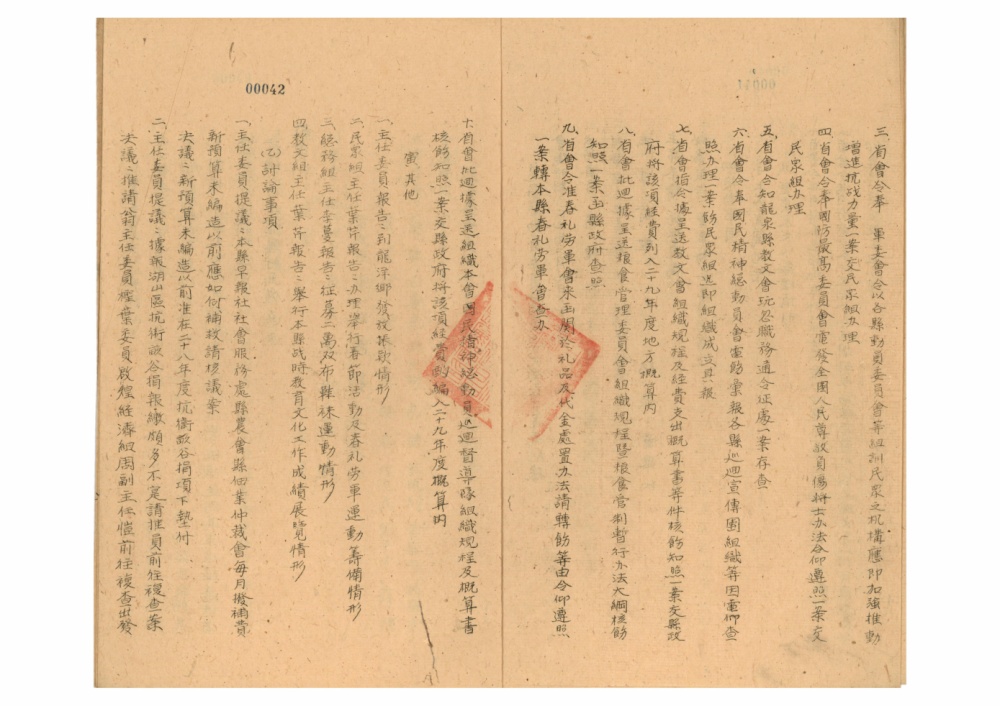 三、省會令奉　軍委會令以各縣動員委員會等組訓民眾之机構應即加強推動
增進抗战力量一案交民眾組办理
四、省會令奉國防最高委員會電發全國人民尊敬員傷將士办法令仰遵照一案交
民眾組办理
五、省會令知龍泉縣教文會玩忽職務通令征處一案存查
六、省會令奉國民精神總動員會電飭彙報各縣巡迴宣傳團組織等因電仰查
照办理一案飭民眾組迅即組織成立具報
七、省會指令據呈送教文會組織規程及經費支出概算書等件核飭知照一案交縣政
府將該項經費列入二十九年度地方概算內
八、省會批迴據呈送粮食管理委員會組織規程暨粮食管制暫行办法大綱核飭
知照一案函縣政府查照
九、省會令准春礼劳軍會來函関於礼品及代金處置办法請轉飭等由令仰遵照
一案轉本縣春礼劳軍會查办
00042
十、省會批迴據呈送組織本會國民精神總動員巡迴督導隊組織規程及概算書
核飭知照一案交縣政府將該項經費劃編入二十九年度概算內
寅其他
一、主任委員報告：到龍洋鄉發放賑款情形
二、民眾組主任葉芹報告：办理舉行春節活動及春礼劳軍運動籌備情形
三、總務組主任李蔓報告：征募二萬双布鞋袜運動情形
四、教文組主任葉芹報告：舉行本縣战時教育文化工作成績展覽情形
(乙)討論事項
一、主任委員提議：本縣早報社社會服務處縣農會縣佃業仲裁會每月撥補費
新預算未編造以前應如何補救請移議案
決議：新預算未編造以前准在二十八年度抗衛穀谷捐項下墊付
二、主任委員提議：據報湖山區抗術谷捐報繳頗多不尾請推員前往複查案
決議：推請翁主任委員葉委員啟煌經濟組周副主任愷前往複查出發